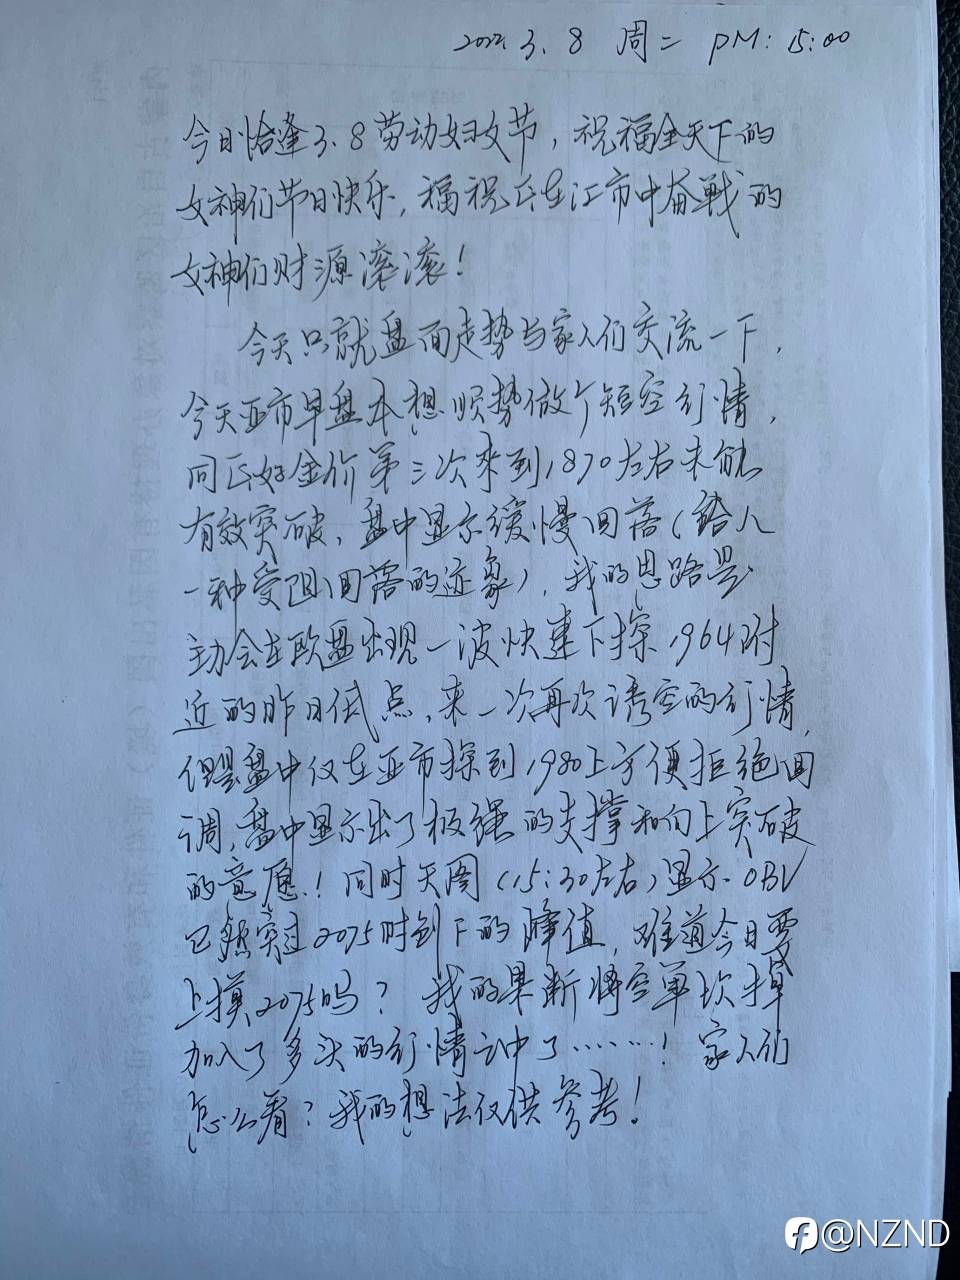 2022.3.8 周二 PM:15:00
今日恰逢3.8劳动妇女节,祝福全天下的
女神们节日快乐,福祝正在江市中奋战的
女神们财源滚滚!
今天只就盘面走势与家人们交流一下,
今天亚市早盘本想顺势做个短空行情,
同正好金价第三次来到1870左右未能
有效突破,盘中显示缓慢回落(给人
一种受阻回落的迹象),我的思路是
主力会在欧盘出现一波快速下探1964附
近的昨日低点,来一次再次诱空的行情,
但是盘中仅在亚市探到1980上方便拒绝回
调,盘中显示出了极强的支撑和向上突破
的意愿!同时天图(15:30左右)显示OBV
已然突过2075时创下的峰值,难道今日要
上摸2075吗?我的果断将空单砍掉
加入了多头的行情之中了……!家人们
怎么看?我的想法仅供参考!
@NZND